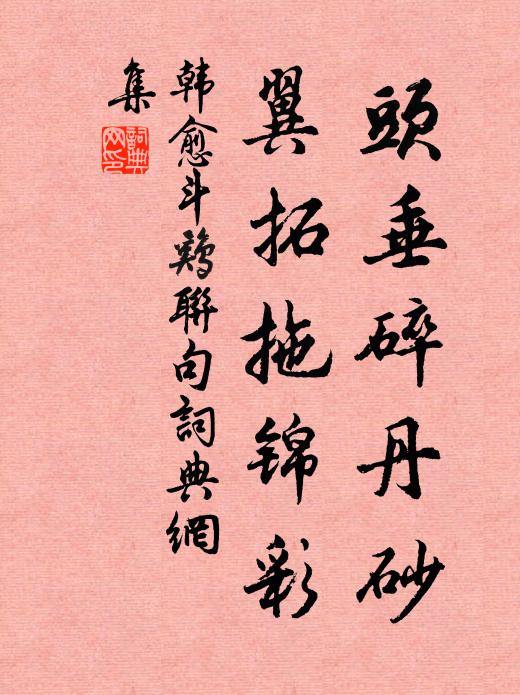 頭垂碎丹砂
翼拓拖锦彩
韩愈斗鸡聯句詞典網
集
詞典网印